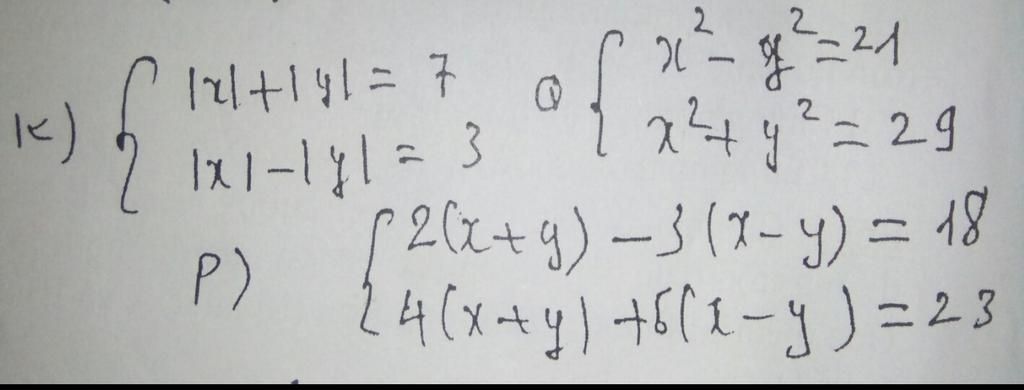 K) { |x| + |y| = 7
|x| - |y| = 3
Q { x² - y² = 21
x² + y² = 29
P) { 2(x+y) - 3(x-y) = 18
4(x+y) + 5(x-y) = 23